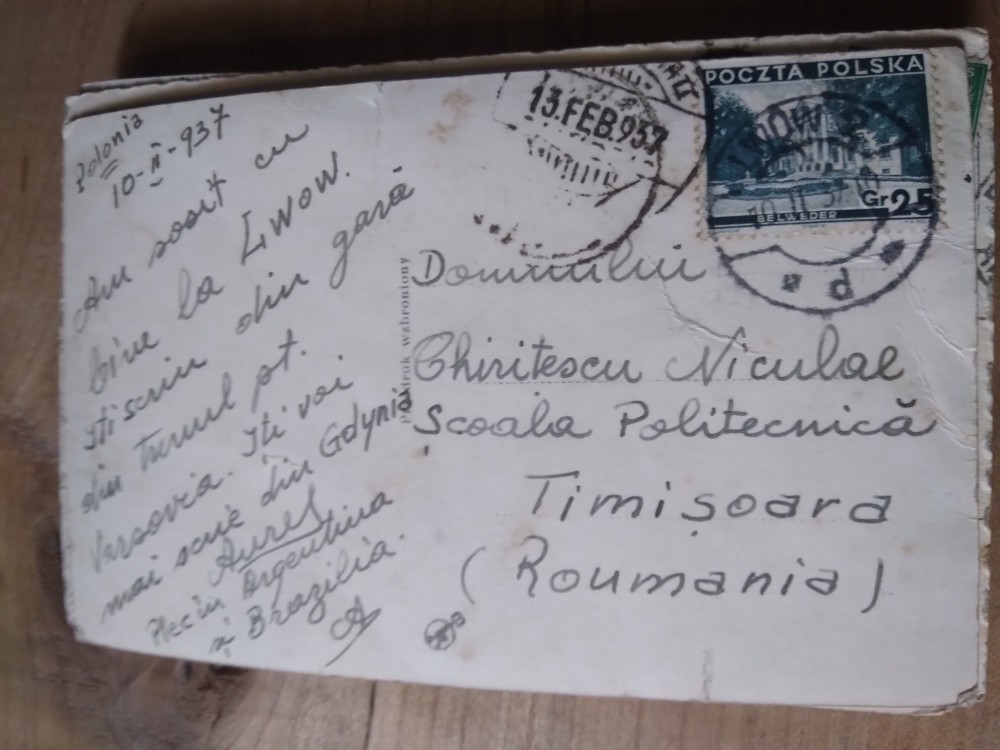 Polonia
10-II-937
Am sosit cu
bine la Lwow.
Iti scriu din gară
din trenul pt.
Varsovia. Iti voi
mai scrie din Gdynia
Aurel
Plec în Argentina
și Brazilia.
A
Przedruk wzbroniony
13.FEB.937
POCZTA POLSKA
BELWEDER
Gr 25
LWÓW 2
d
Domnului
Chiritescu Niculae
Școala Politecnică
Timișoara
(Roumania)